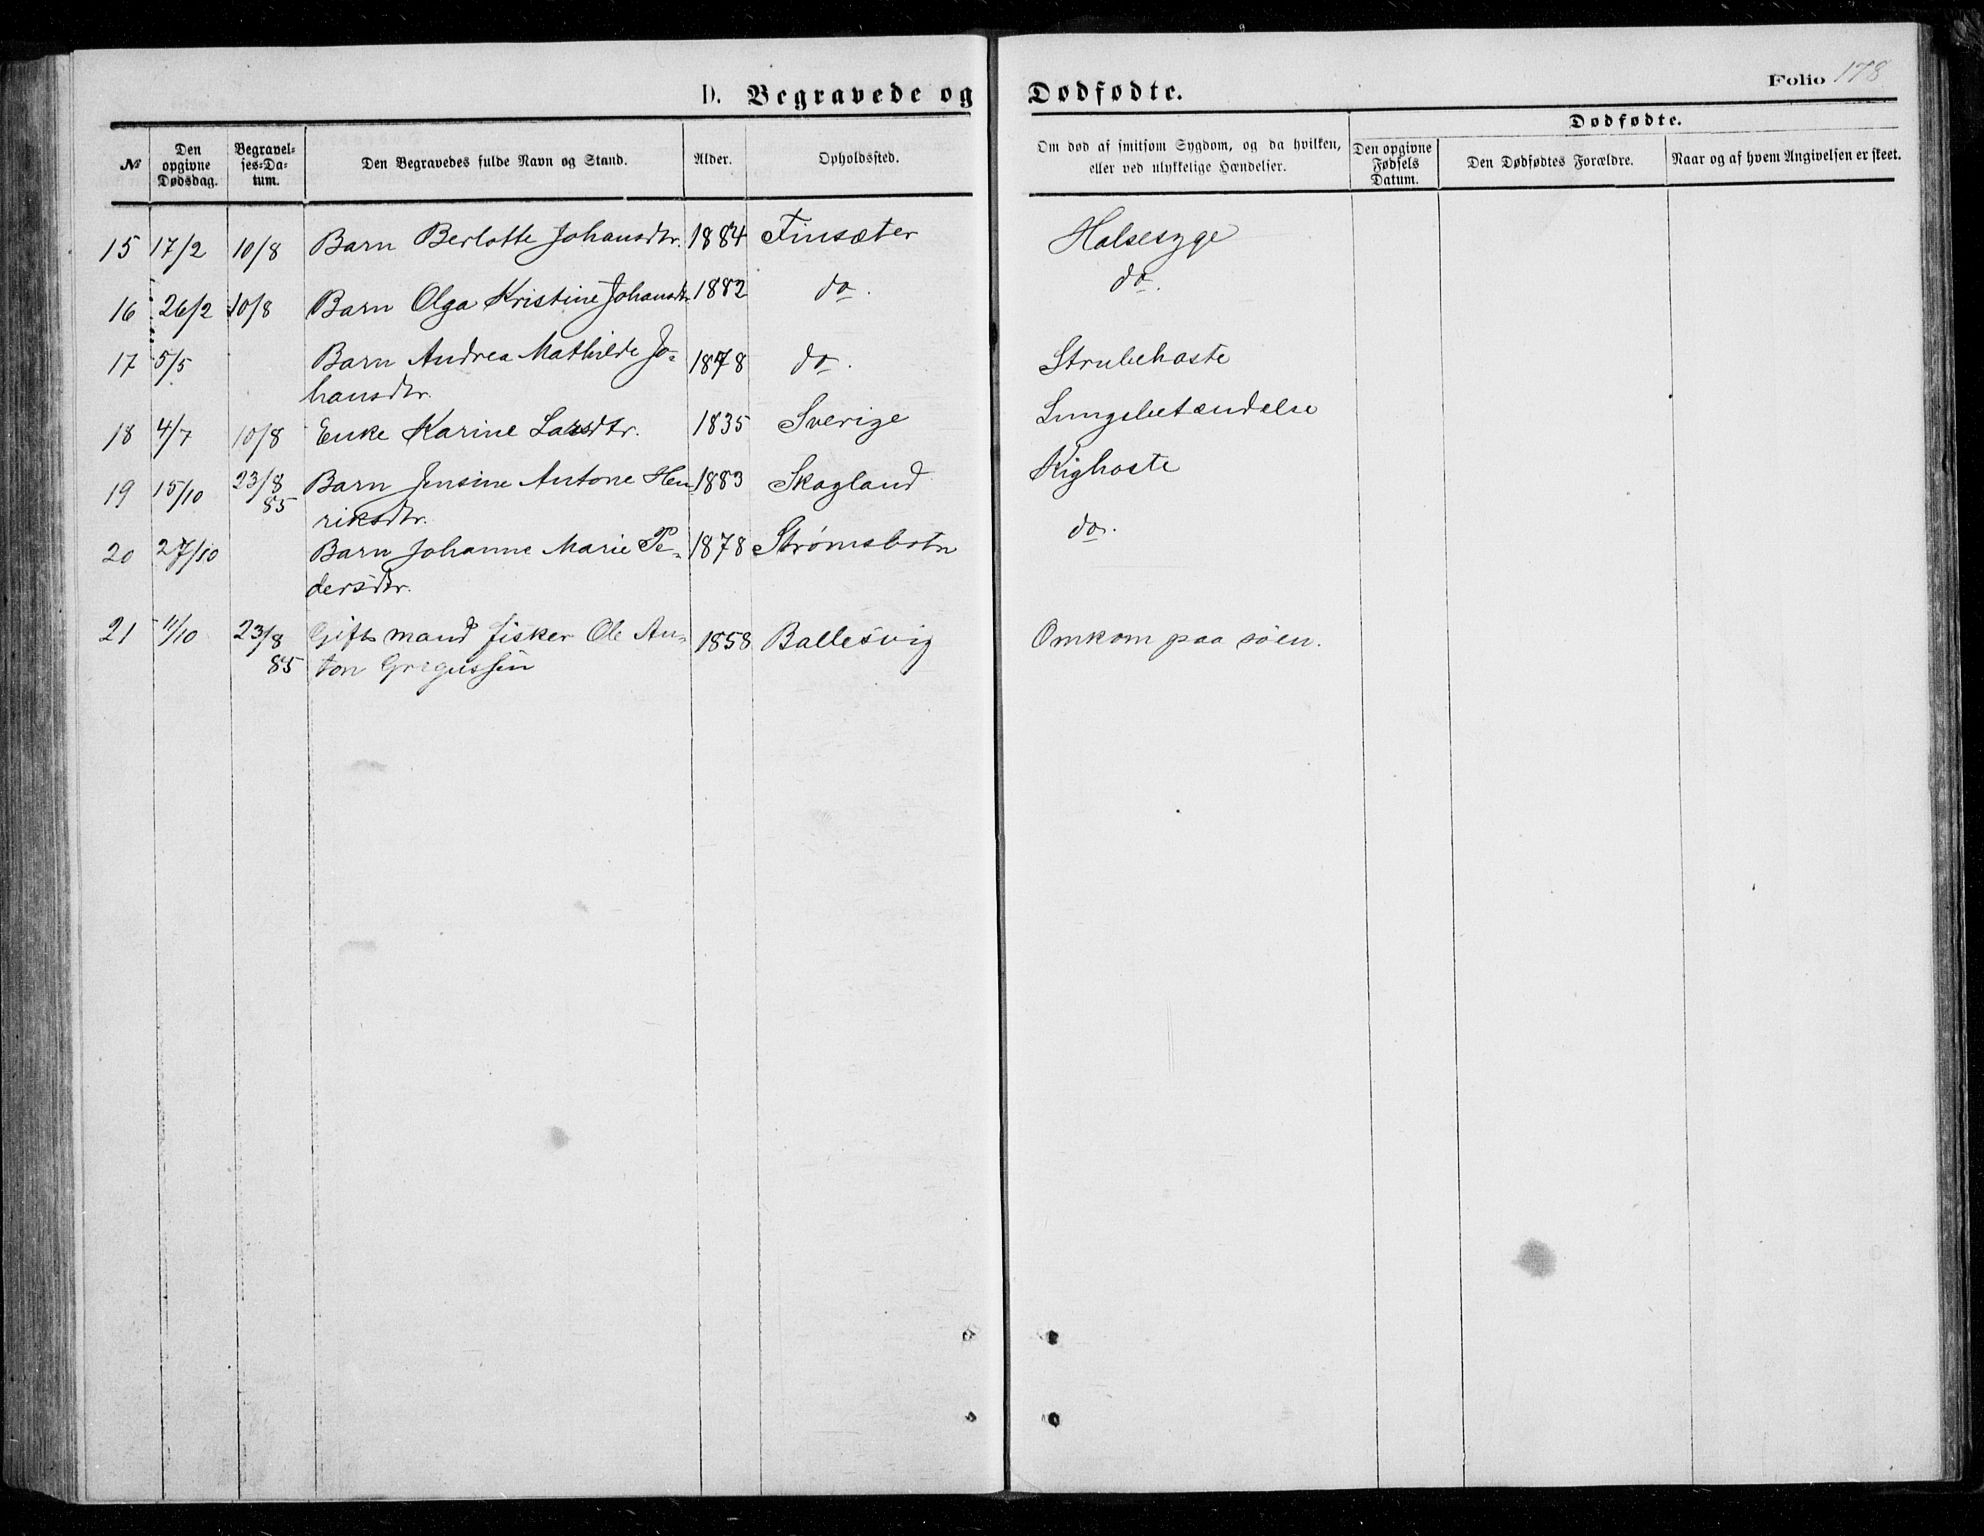 D. Begravede og Dødfødte.
Folio 178
Dødfødte.
№ | Den opgivne Dødsdag. | Begravelses-Datum. | Den Begravedes fulde Navn og Stand. | Alder. | Opholdssted. | Om død af smitsom Sygdom, og da hvilken, eller ved ulykkelige Hændelser. | Den opgivne Fødsels Datum. | Den Dødfødtes Forældre. | Naar og af hvem Angivelsen er skeet.
15 17/2 10/8 Barn Berlotte Johansdtr. 1884 Finsæter Halsesyge
16 26/2 10/8 Barn Olga Kristine Johansdtr 1882 do. do.
17 5/5 Barn Andrea Mathilde Jo- 1878 do. Strubehoste
hansdtr.
18 4/7 10/8 Enke Karine Larsdtr. 1835 Sverige Lungebetændelse
19 15/10 23/8 Barn Jensine Antone Hen- 1883 Skagland Kighoste
85 riksdtr.
20 27/10 Barn Johanne Marie Pe- 1878 Strømsbotn do.
dersdtr.
21 11/10 23/8 Gift mand fisker Ole An- 1858 Ballesvig Omkom paa søen.
85 ton Gregussen